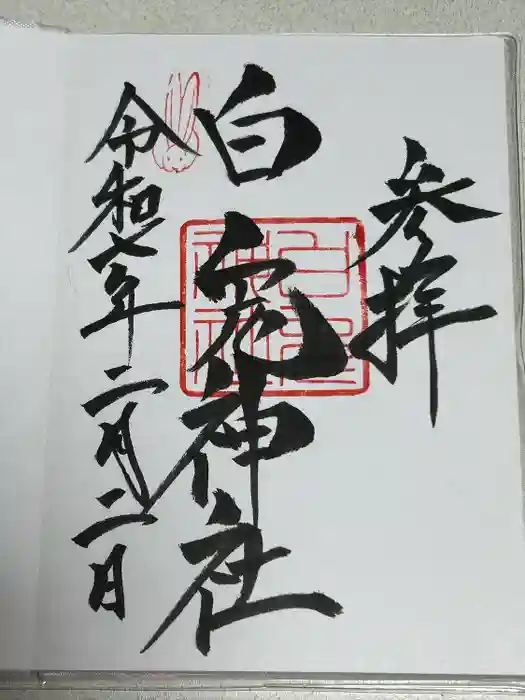 参拝
白兎神社
令和七年二月二日